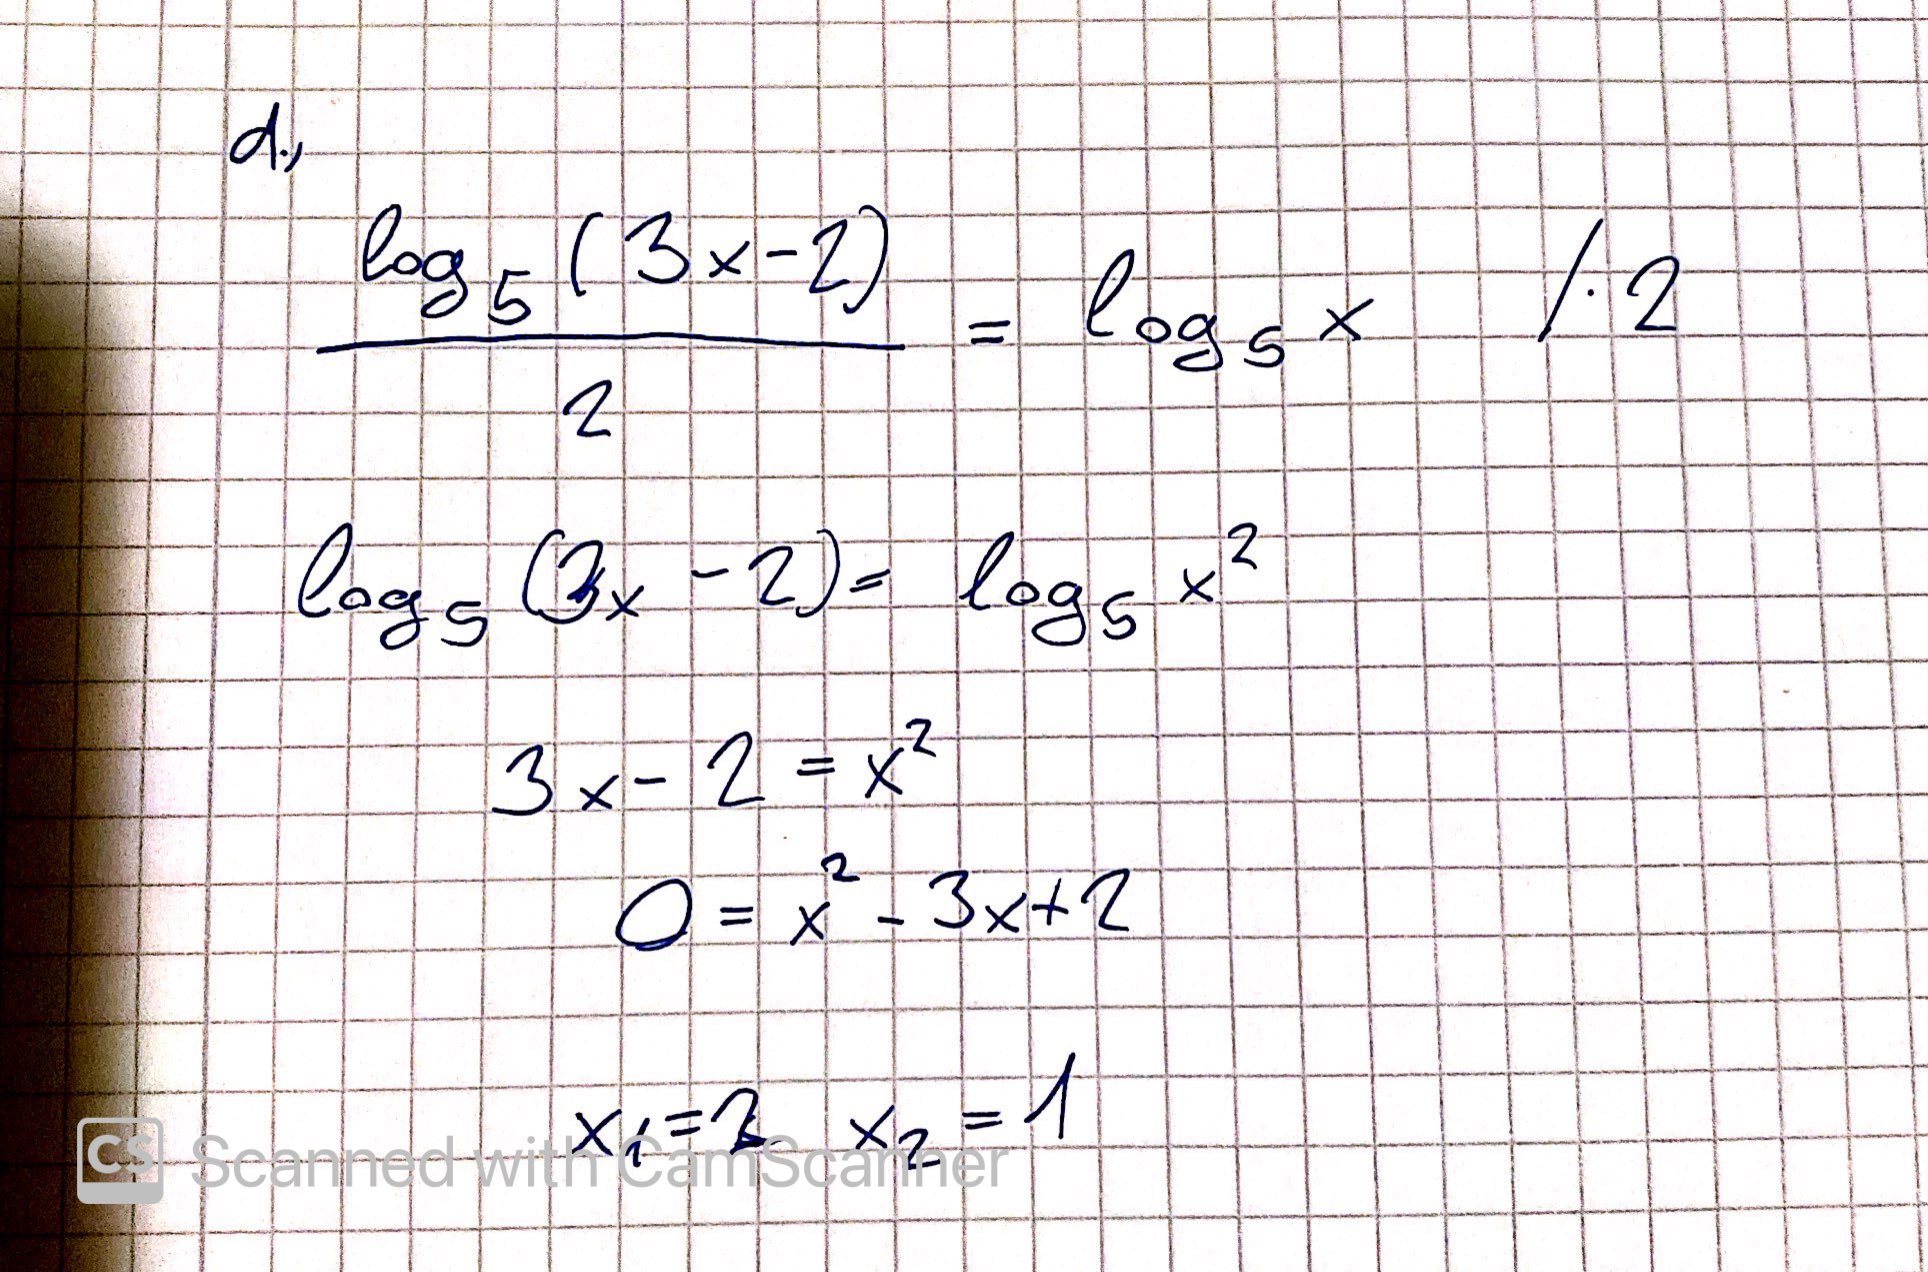 d.,
log₅(3x-2)
/2 = log₅ x /·2
log₅(3x-2) = log₅ x²
3x-2 = x²
0 = x²-3x+2
x₁=2 x₂=1
CS Scanned with CamScanner